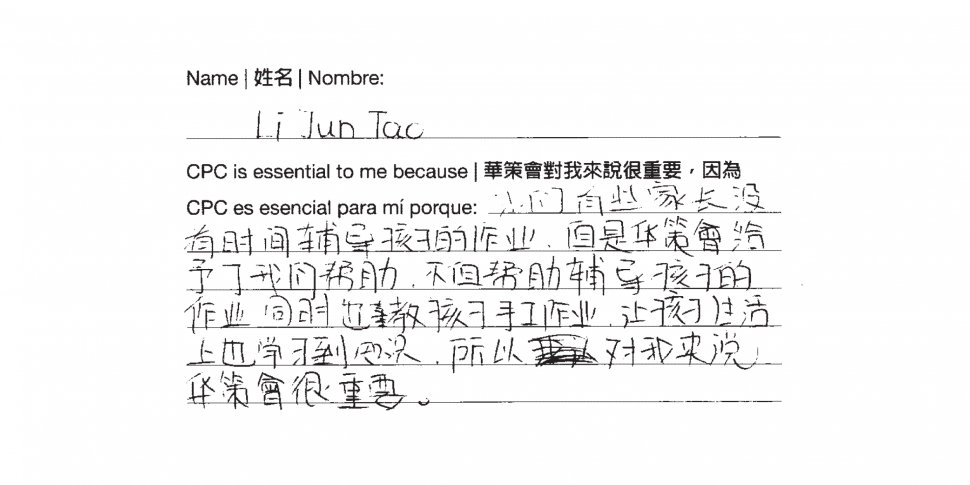 Name | 姓名 | Nombre:
Li Jun Tao
CPC is essential to me because | 華策會對我來說很重要，因為
CPC es esencial para mí porque: 我们有些家长没
有时间辅导孩子的作业，但是华策會给
予了我们帮助，不但帮助辅导孩子的
作业同时也教孩子手工作业，让孩子生活
上也学习到知识，所以对我来说
华策會很重要。